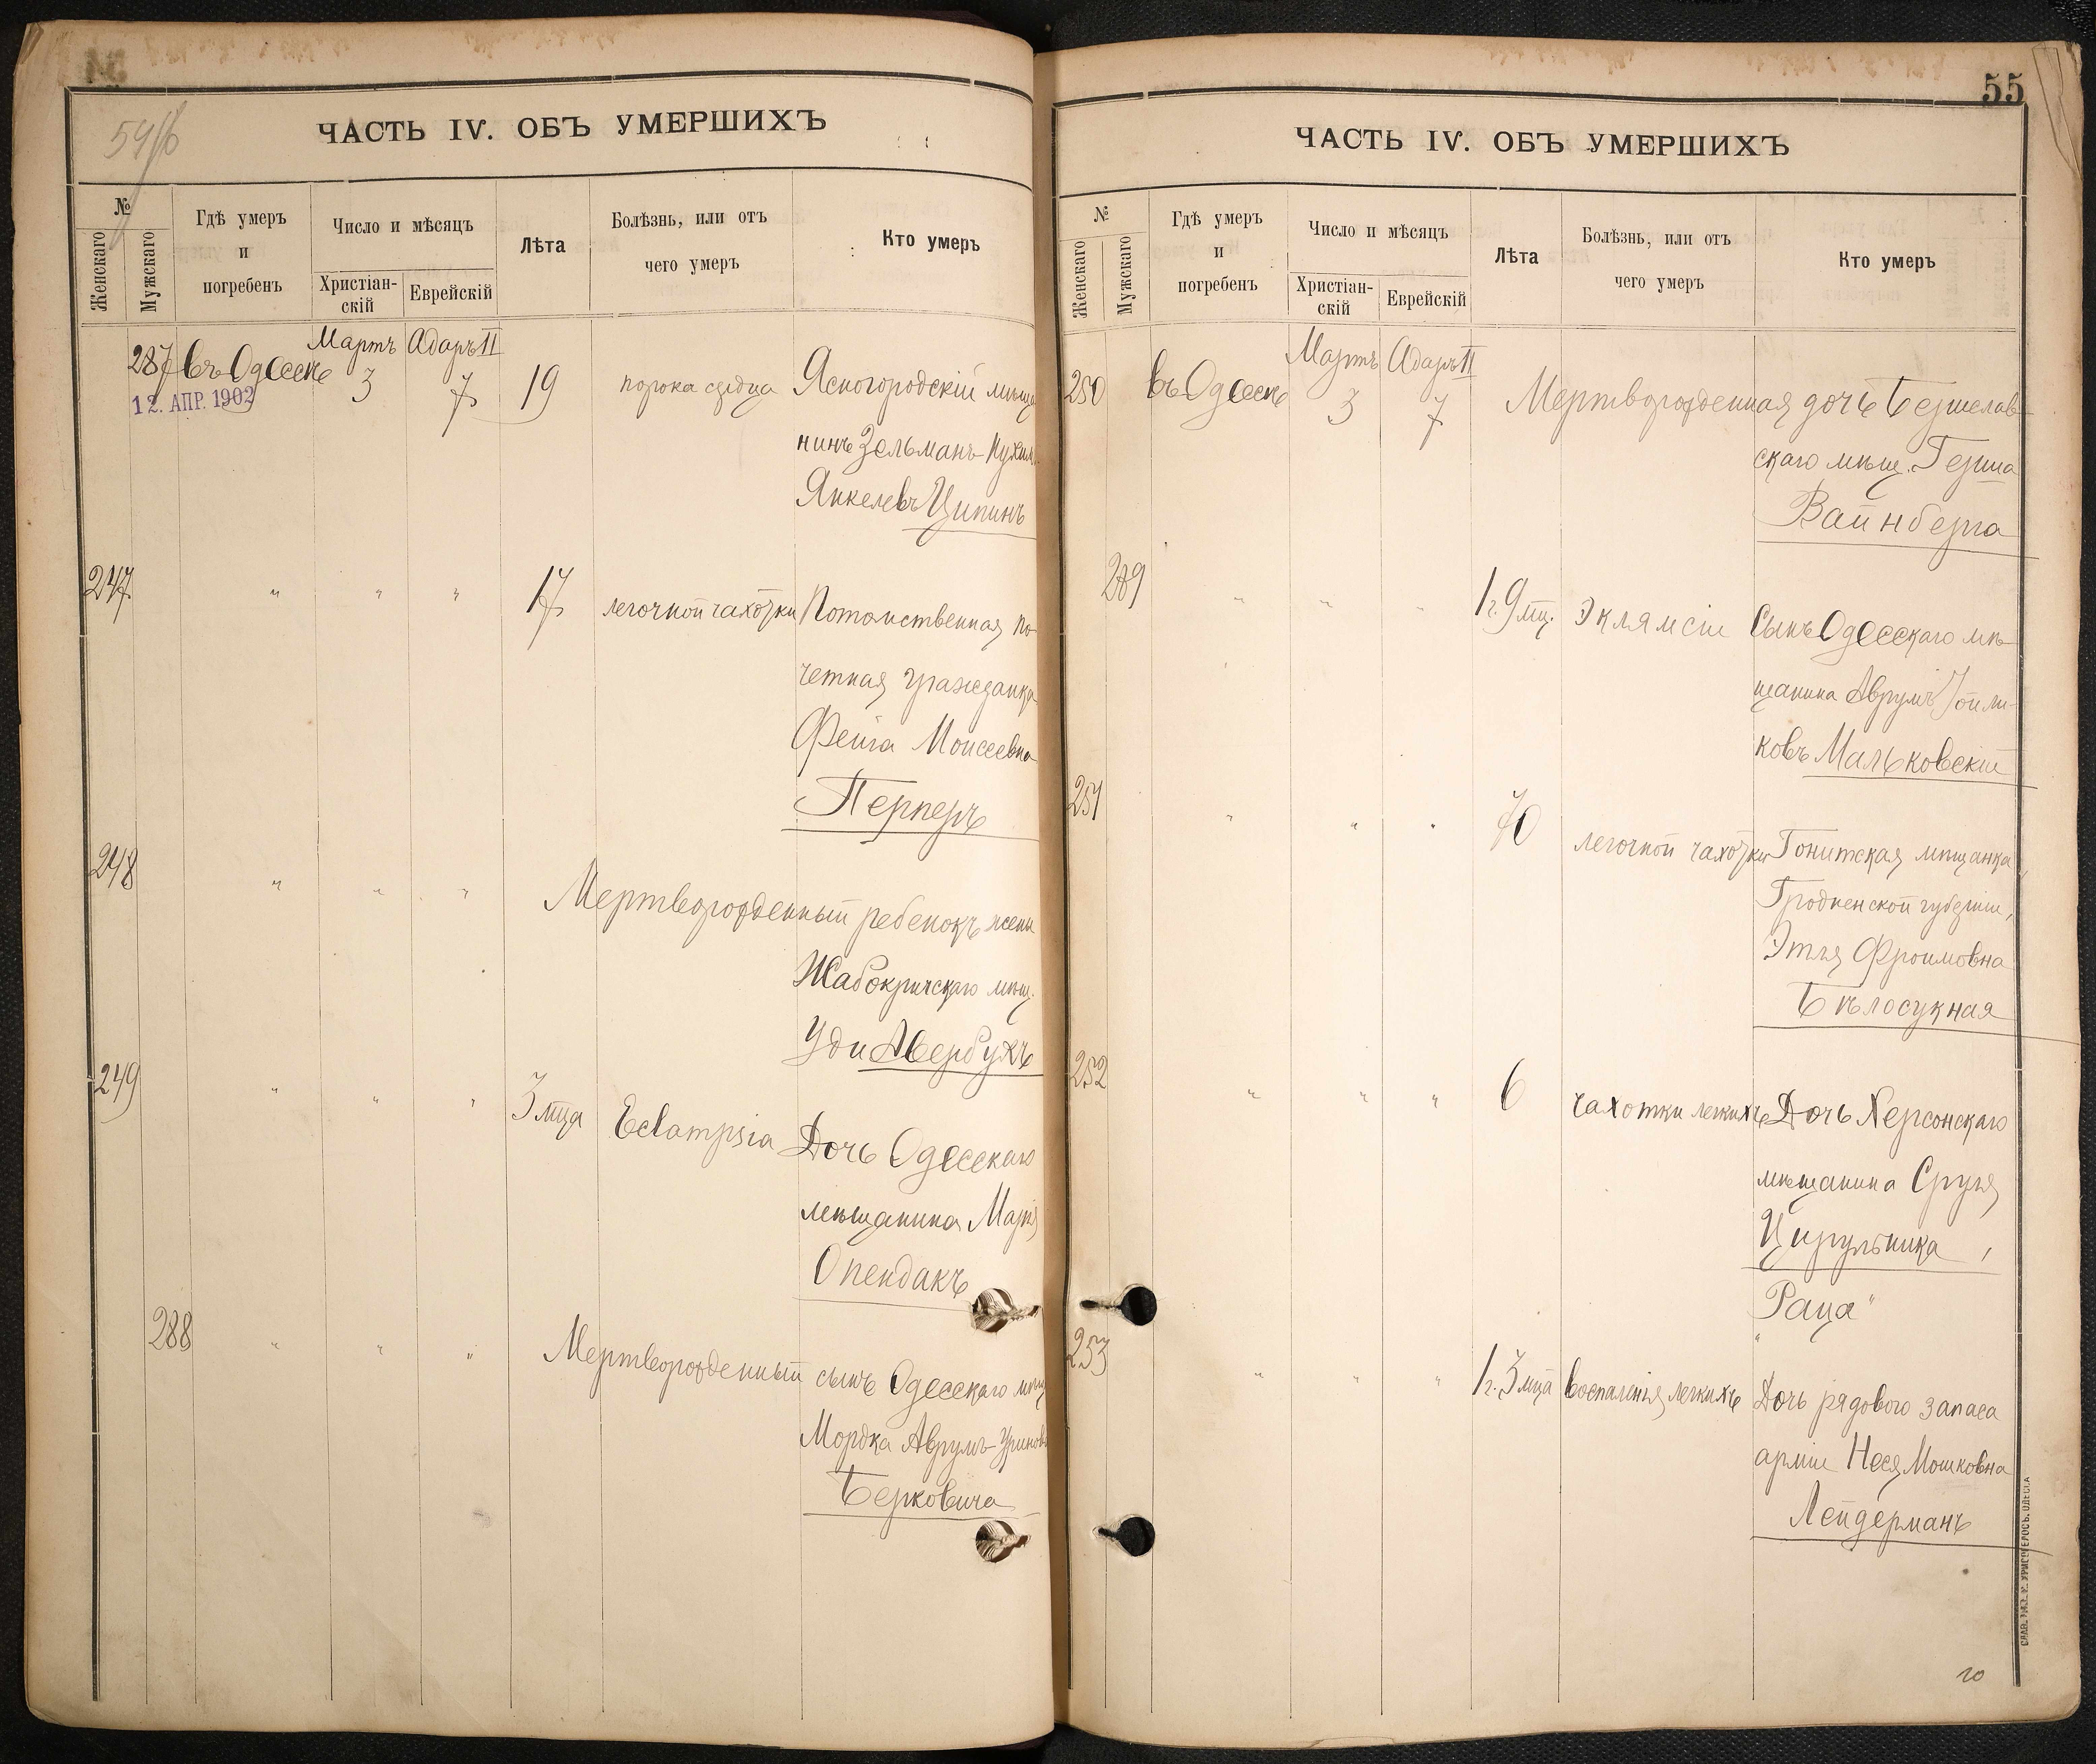 54/б
ЧАСТЬ IV. ОБЪ УМЕРШИХЪ
№
Женскаго
Мужскаго
Гдѣ умеръ
и
погребенъ
Число и мѣсяцъ
Христіан-
скій
Еврейскій
Лѣта
Болѣзнь, или отъ
чего умеръ
Кто умеръ
Мартъ Адаръ II
287 въ Одессѣ 3 7 19 порока сердца Ясногородскій мѣща
12. АПР. 1902
нинъ Зельманъ-
Янкелевъ Ципинъ
247 " " " 17 легочной чахотки Потомственная по-
четная гражданка
Фейга Моисеевна
Перперъ
248 " " " Мертворожденный ребенокъ жены
Жабокричскаго мѣщ.
Уди Авербухъ
249 " " " 3 мца Eclampsia Дочь Одесскаго
мѣщанина Марія
Опендакъ
288 " " " Мертворожденный сынъ Одесскаго мѣщ
Мордка Аврумъ-Уринова
Берковича
55
ЧАСТЬ IV. ОБЪ УМЕРШИХЪ
№
Женскаго
Мужскаго
Гдѣ умеръ
и
погребенъ
Число и мѣсяцъ
Христіан-
скій
Еврейскій
Лѣта
Болѣзнь, или отъ
чего умеръ
Кто умеръ
Мартъ Адаръ II
250 въ Одессѣ 3 7 Мертворожденная дочь Берислав-
скаго мѣщ. Герша
Вайнберга
289 " " " 1 г. 9 мц. Эклямсіи Сынъ Одесскаго мѣ-
щанина Аврумъ Іойли-
ковъ Мальковскій
251 " " " 70 легочной чахотки Гонитская мѣщанка
Гродненской губерніи,
Этля Фроимовна
Бѣлосукная
252 " " " 6 чахотки легкихъ Дочь Херсонскаго
мѣщанина Сруля
Цирульника,
"Раца"
253 " " " 1 г. 3 мца воспаленія легкихъ Дочь рядового запаса
арміи Неся Мошковна
Лейдерманъ
20